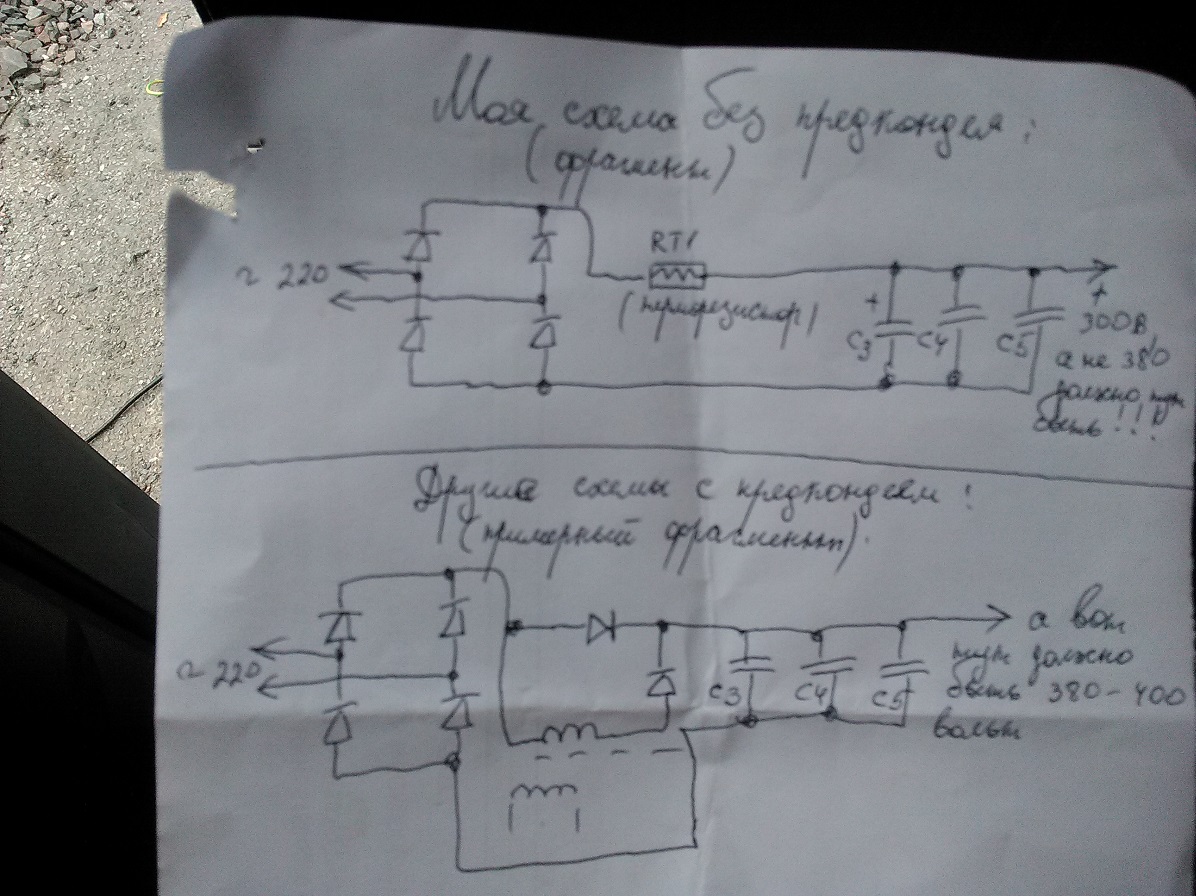 Моя схема без предкондея:
(фрагмент)
~ 220
RT1
(терморезистор)
+
C3
C4
C5
+
300В
а не 380
должно тут
быть!!!
Другие схемы с предкондеем:
(примерный фрагмент).
~ 220
C3
C4
C5
а вот
тут должно
быть 380-400
вольт